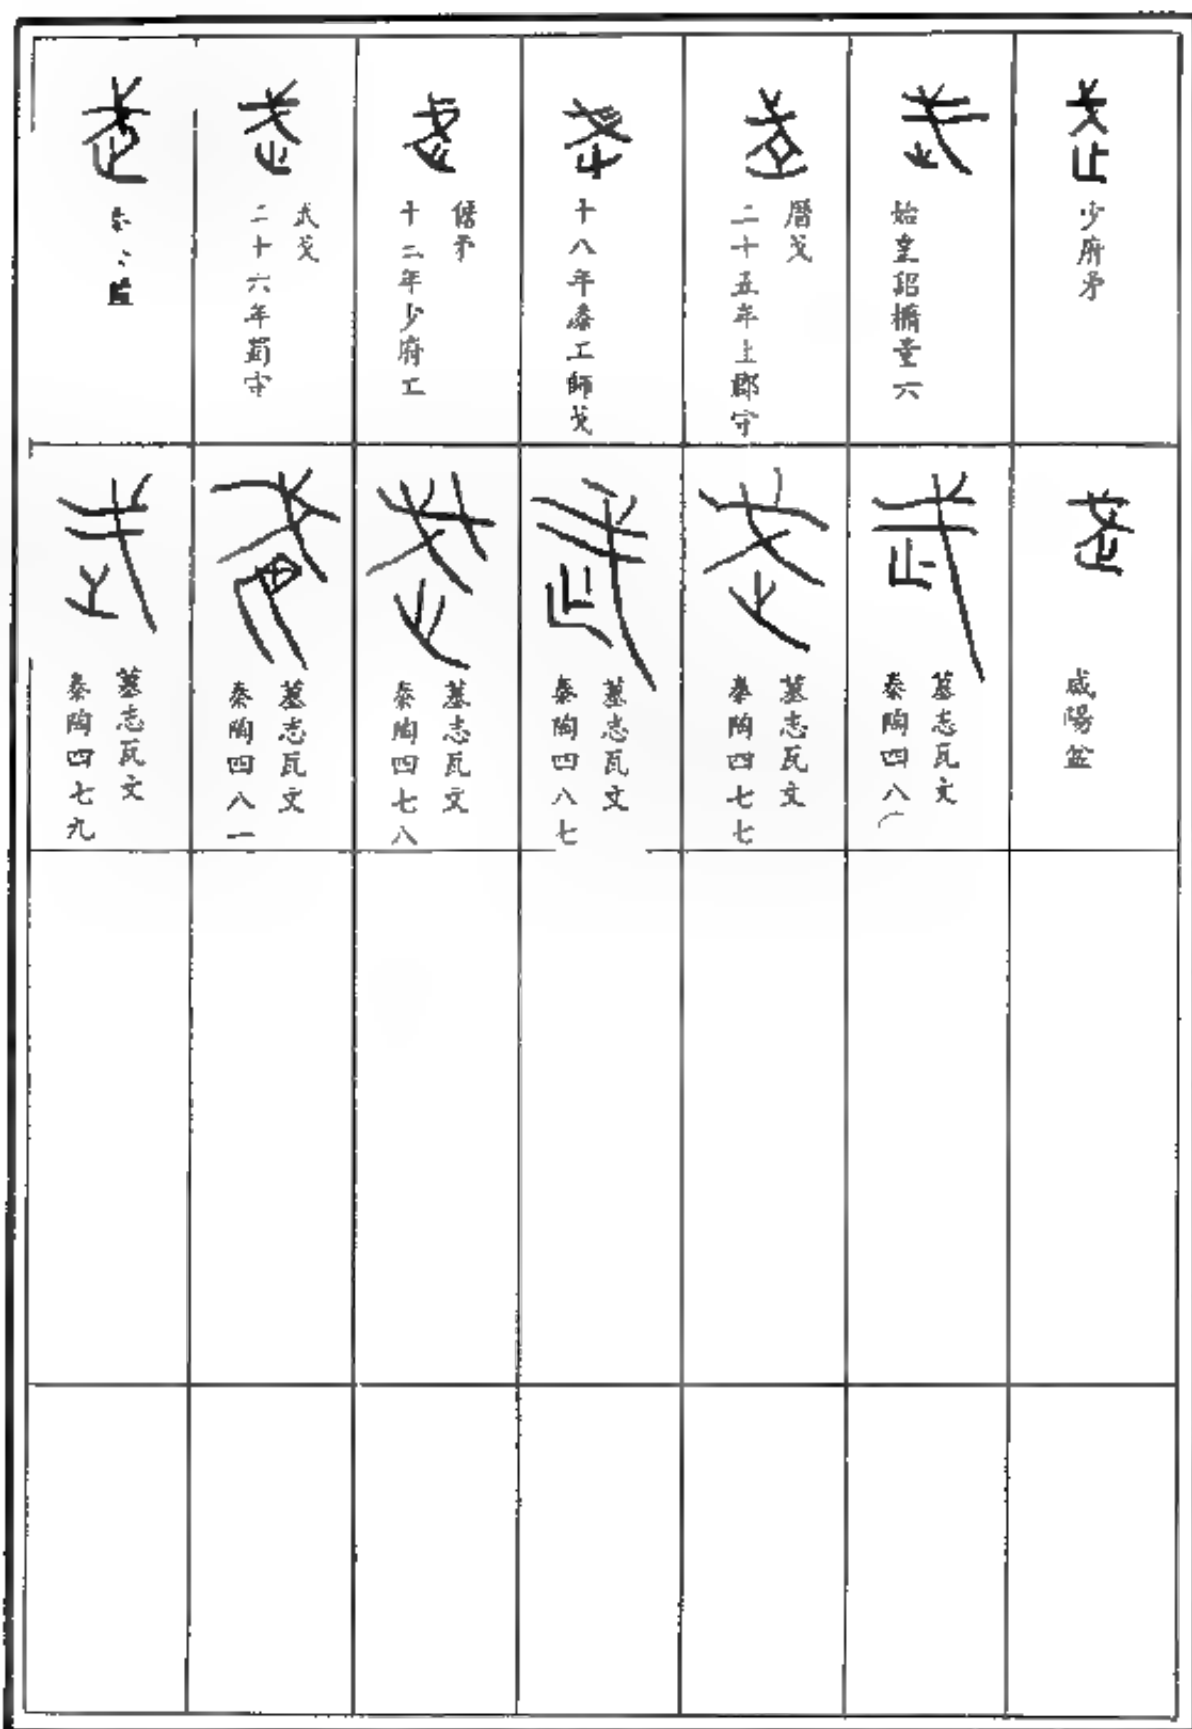 武
少府矛
武
始皇詔橢量六
武
二十五年上郡守
厝戈
武
十八年桼工師戈
武
十二年少府工
矛
武
二十六年蜀守
武戈
武
武
咸陽盆
武
墓志瓦文
秦陶四八
武
墓志瓦文
秦陶四七七
武
墓志瓦文
秦陶四八七
武
墓志瓦文
秦陶四七八
武
墓志瓦文
秦陶四八一
武
墓志瓦文
秦陶四七九